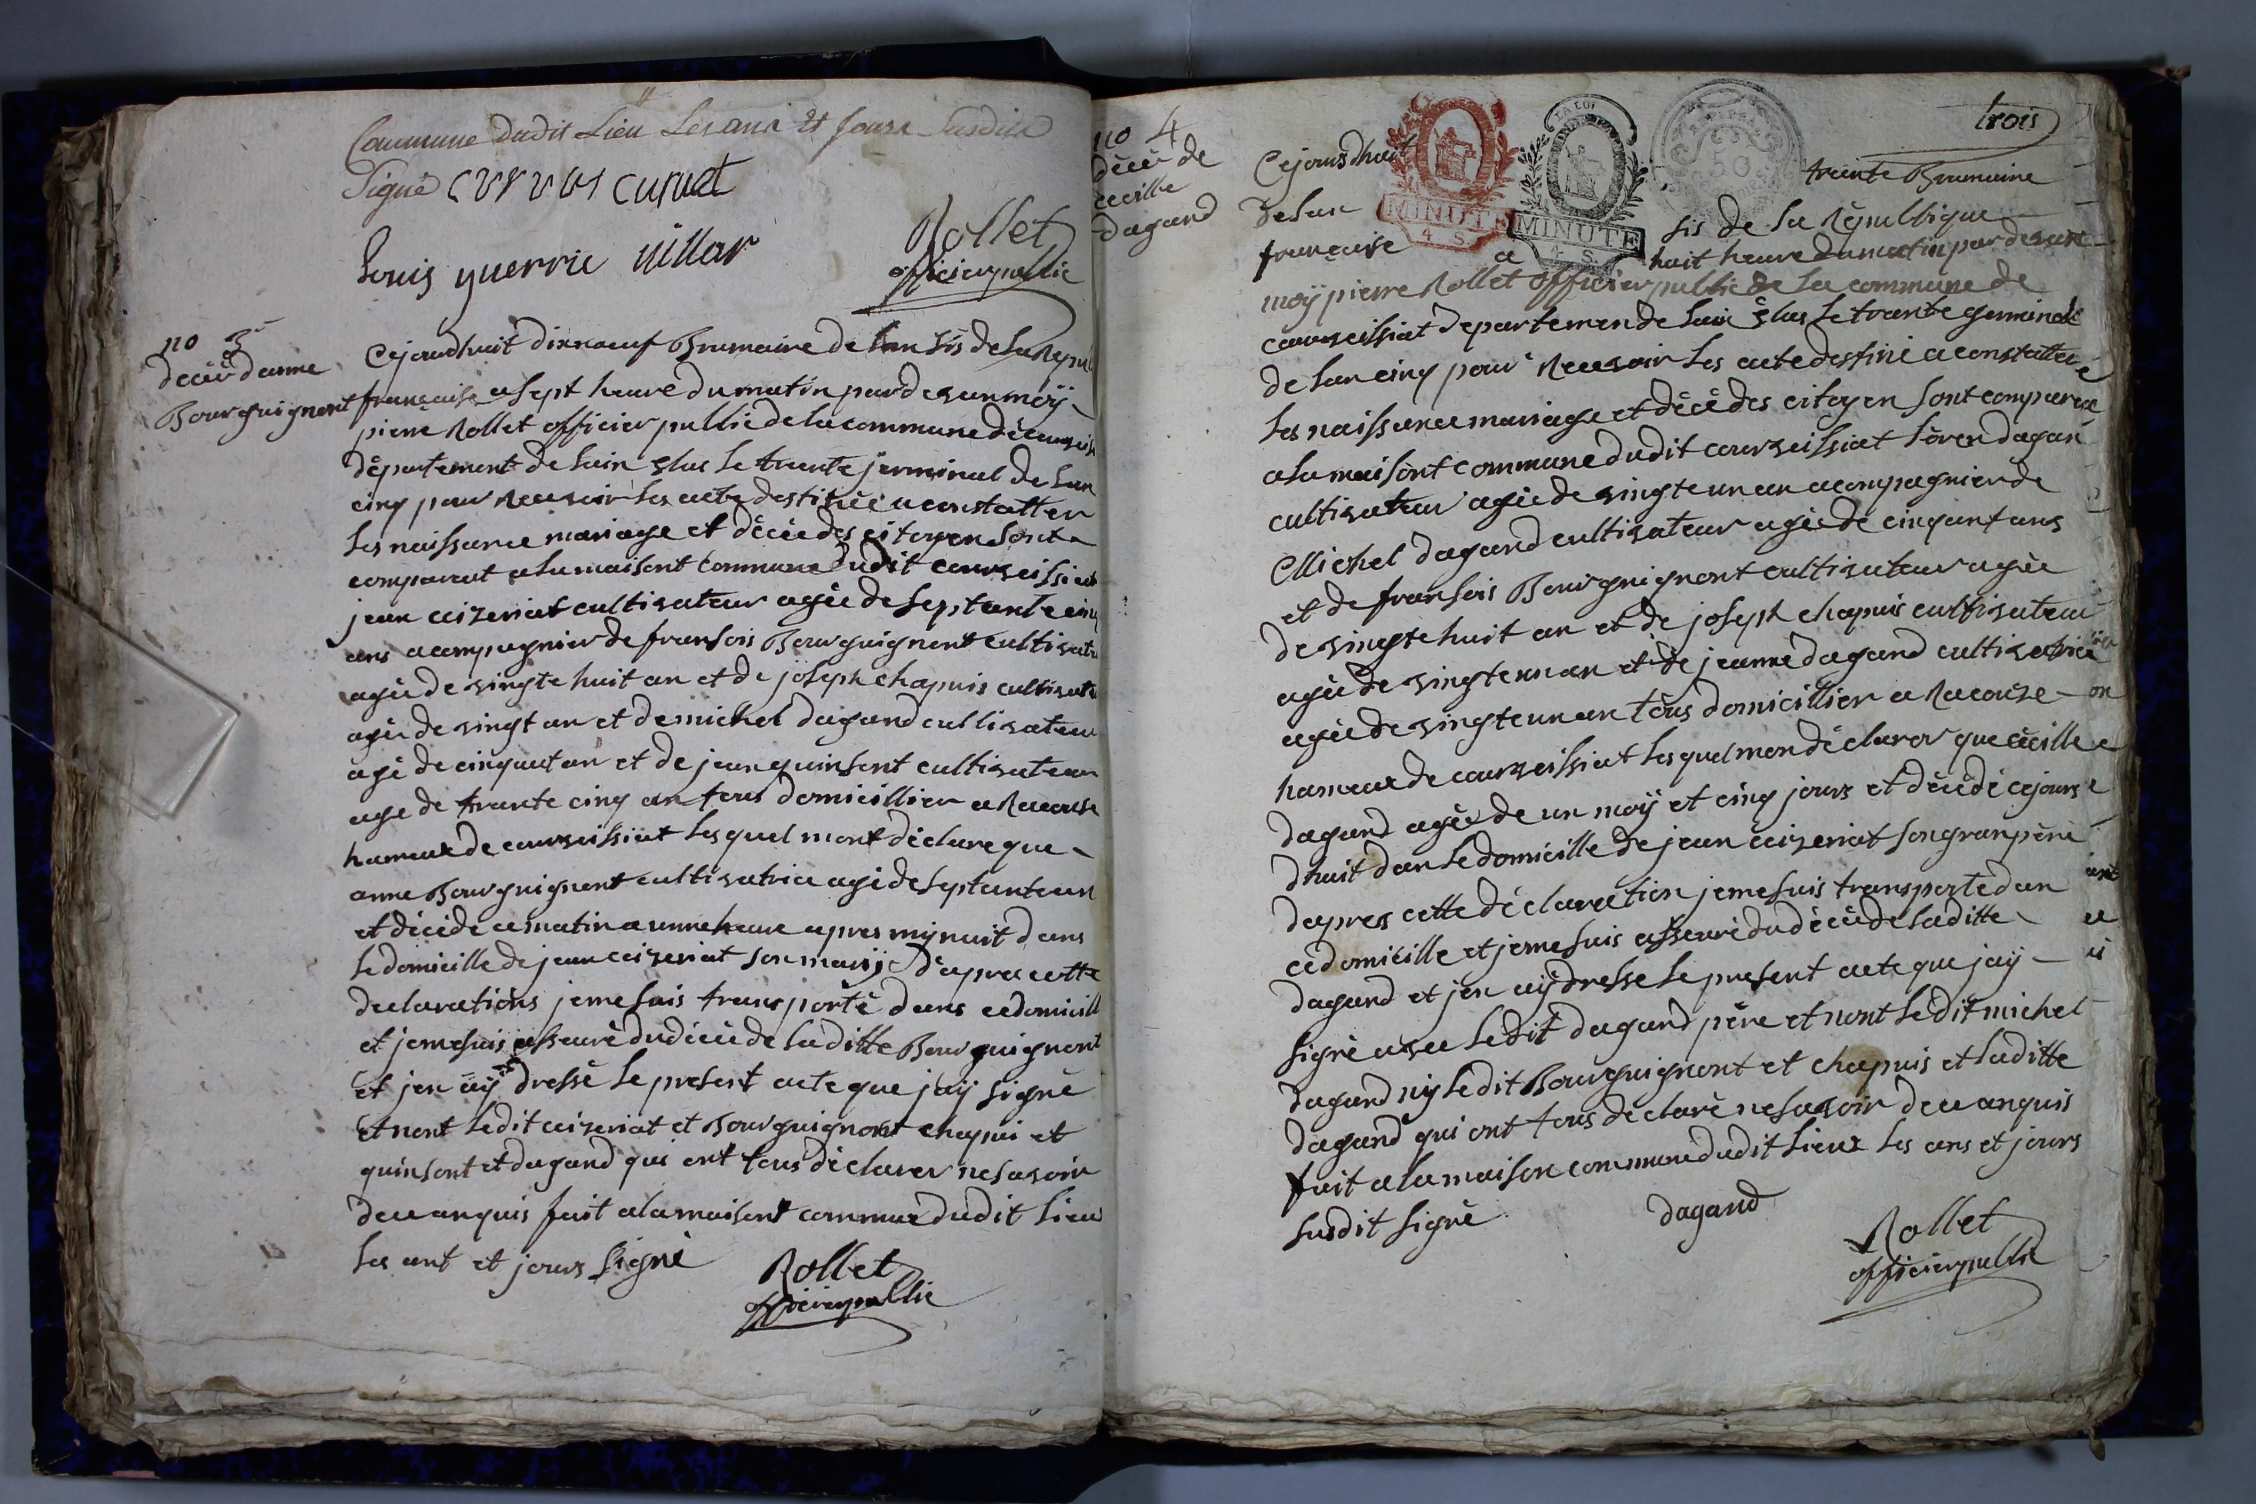 Commune dudit Lieu Les ans et Jours Susdits
Signé curvat curvat
Louis guerrie villar
Rollet
officier publie
no 3
décéé danne
Bourguignont
Cejourdhuit dixneuf Brumaire de lan sis de la Repu
française a sept heure du matin pardevan moÿ
pierre Rollet officier publie de la commune de courseis
département de lain elus le trante jerminal de lan
cinq pour Recevoir les acte destinée a constatter
les naissance mariage et décée des citoyen sont
comparut a la maisont commune dudit courseissiat
jean ceizeriat cultivateur agée de septante cinq
ans acompagnier de fransois Bourguignont cultivate
agée de vingte huit an et de joseph chapuis cultivate
agée de vingt an et de michel dagand cultivateur
agé de cinquant an et de jean quinsont cultivateur
age de trante cinq an tous domicillier a Racouse
hameaux de courseissiat lesquel mont déclare que
anne Bourguignont cultivatrice agé de septante an
et décéde ce matin a unne heure apres mynuit dans
le domicille de jean ceizeriat son mary Dapres cette
declarations jemesuis transporté dans ce domicill
et jemesuis asseuré du décée de laditte Bourguignont
et jen aÿ dressé le present acte que jaÿ signé
et nont ledit ceizeriat et Bourguignont chapui et
quinsont et dagand qui ont tous déclarer ne savoir
de ce anquis fait a la maisont commune dudit lieu
les ant et jours signé
Rollet
officier publie
trois
no 4
décée de
cecille
dagand
LA LOI
MINUTE
4 S.
MINUTE
4 S.
50
Cejourdhuit trente Brumaire
de lan sis de la Républlique
française a huit heure du matin pardevant
moÿ pierre Rollet officier publie de la commune de
courseissiat departemen de lain élus le trante germinal
de lan cinq pour Recevoir les acte destiné a constatter
les naissance mariage et décé des citoyen sont comparu
a la maisont commune dudit courseissiat loren dagan
cultivateur agée de vingte un an acompagnier de
Michel dagand cultivateur agée de cinqant ans
et de fransois Bourguignont cultivateur agée
de vingte huit an et de joseph chapuis cultivateur
agée de vingte un an et de jeanne dagand cultivatrice
agée de vingte un an tous domicillier a Racouse
hameaux de courseissiat lesquel mon déclarer que cécille
dagand agée de un moÿ et cinq jours et décédé cejours
dhuit dan le domicille de jean ceizeriat son gran père
dapres cette déclaration jemesuis transporte dan
ce domicille et jemesuis asseuré du décé de laditte
dagand et jen aÿ dresse le present acte que jaÿ
signé avec ledit dagand père et nont ledit michel
dagand nÿ ledit Bourguignont et chapuis et laditte
dagand qui ont tous déclaré ne savoir de ce anquis
fait a la maison commune dudit lieux les ans et jours
susdit signé
dagand
Rollet
officier publie